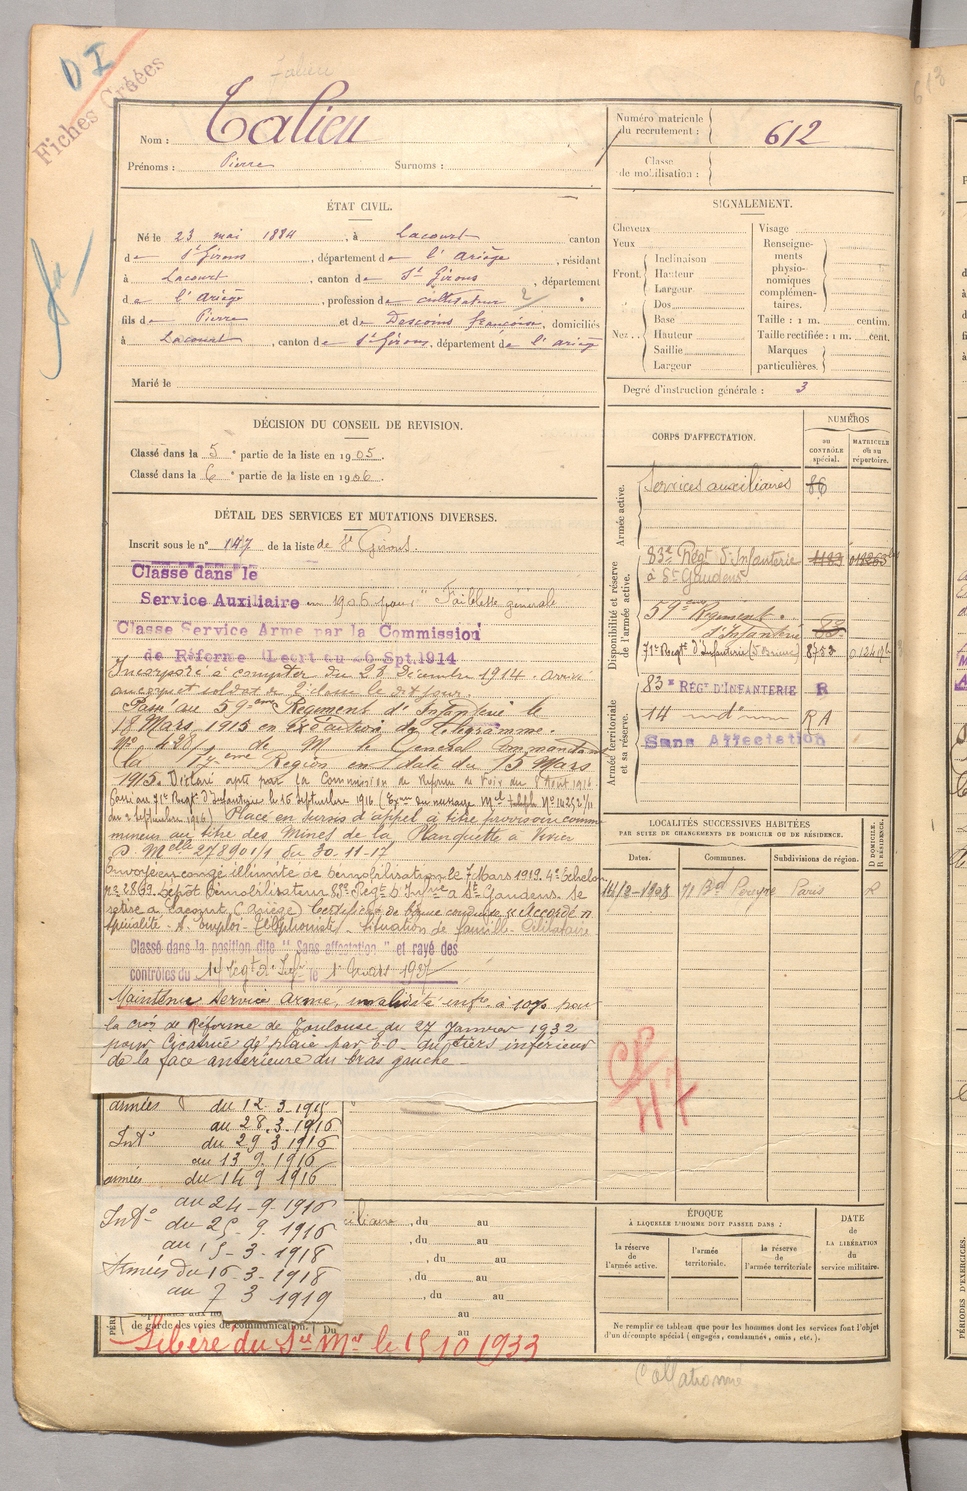 D I
Fiches Créées
Talieu
Nom : Talieu
Prénoms : Pierre Surnoms :
Numéro matricule du recrutement : 612
Classe de mobilisation :
ÉTAT CIVIL.
Né le 23 mai 1884, à Lacourt canton
de St Girons, département de l'Ariège, résidant
à Lacourt, canton de St Girons, département
de l'Ariège, profession de cultivateur 2
fils de Pierre et de Descoins françoise, domiciliés
à Lacourt, canton de St Girons, département de l'Ariège
Marié le
SIGNALEMENT.
Cheveux
Yeux
Front. Inclinaison
Hauteur
Largeur
Nez . . Dos
Base
Hauteur
Saillie
Largeur
Visage
Renseignements physionomiques complémentaires.
Taille : 1 m. centim.
Taille rectifiée : 1 m. cent.
Marques particulières.
Degré d'instruction générale : 3
DÉCISION DU CONSEIL DE REVISION.
Classé dans la 5e partie de la liste en 1905.
Classé dans la 6e partie de la liste en 1906.
DÉTAIL DES SERVICES ET MUTATIONS DIVERSES.
Inscrit sous le n° 147 de la liste de St Girons.
Classé dans le
Service Auxiliaire en 1906 pour "Faiblesse générale
Classé Service Armé par la Commission
de Réforme (Decret du 26 Spt. 1914
Incorporé à compter du 26 Décembre 1914. arrivé
au corps et soldat de 2e classe le dit jour.
Passé au 59eme Régiment d'Infanterie le
18 Mars 1915 en exécution du télégramme
N° 428/ de M. le Général Commandant
la 17eme Région en date du 15 Mars
1915. Déclaré apte par la Commission de Réforme de Foix du 8 Août 1916
Passé au 71e Regt d'Infanterie le 16 Septembre 1916 (
du 2 septembre 1916) Placé en sursis d'appel à titre provisoire comme
mineur au titre des Mines de la Planquette à
D. Melle 278901/1 du 30-11-17,
Envoyé en congé illimité de démobilisation le 7 Mars 1919. 4e échelon
n° 2869. Dépôt démobilisateur 83e Regt d'Infrie à St Gaudens. Se
retire à Lacourt (Ariège) Certificat de bonne conduite "Accordé"
Spécialité - S. emploi - Téléphoniste - Situation de famille Célibataire
Classé dans la position dite "Sans affectation" et rayé des
contrôles du 14 Regt d'Infie le 1 mars 1927
Maintenu service armé, invalidité infre à 10% par
la cion de Réforme de Toulouse du 27 Janvier 1932
pour Cicatrice de plaie par E.O. du tiers inférieur
de la face antérieure du bras gauche
armées du 12-3-1915
au 28.3.1916
Intr du 29 3 1916
au 13 9. 1916
armées du 14 9 1916
au 24-9-1916
Intr du 25-9.1916
au 15-3-1918
Armées du 16-3-1918
au 7 3 1919
iliaire , du au
, du au
, du au
, du au
, du au
au
de garde des voies de communication. Du au
Libéré du Sce Mre le 15 10 1933
CORPS D'AFFECTATION.
NUMÉROS
au CONTRÔLE spécial.
MATRICULE ou au répertoire.
Armée active.
Services auxiliaires 86
Disponibilité et réserve de l'armée active.
83e Régt d'Infanterie
à St Gaudens
59eme Régiment
d'Infanterie 83
71e Regt d'Infanterie (St Brieuc) 8753
Armée territoriale et sa réserve.
83e RÉGt D'INFANTERIE R
14 — d° — RA
Sans Affectation
LOCALITÉS SUCCESSIVES HABITÉES
PAR SUITE DE CHANGEMENTS DE DOMICILE OU DE RÉSIDENCE.
Dates. Communes. Subdivisions de région. D DOMICILE. R RÉSIDENCE.
14/2-1908 71 Bd Pereyre Paris R
CP
H7
ÉPOQUE
À LAQUELLE L'HOMME DOIT PASSER DANS :
la réserve de l'armée active.
l'armée territoriale.
la réserve de l'armée territoriale
DATE de LA LIBÉRATION du service militaire.
Ne remplir ce tableau que pour les hommes dont les services font l'objet
d'un décompte spécial (engagés, condamnés, omis, etc.).
Collationné
613
PÉRIODES D'EXERCICES.